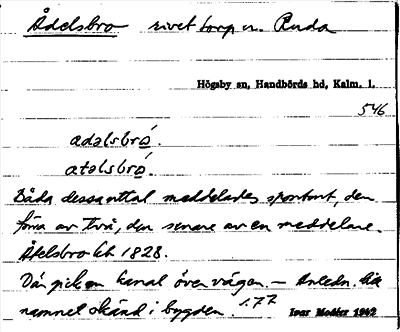 Ådelsbro rivet torp u. Ruda
Högsby sn, Handbörds hd, Kalm. l.
546
adəlsbró.
atəlsbró.
Båda dessa uttal meddelades spontant, den
förra av två, den senare av en meddelare.
Åtelsbro kb 1828.
Där gick en kanal över vägen. — Anledn. till
namnet okänd i bygden. 177
Ivar Modéer 1942